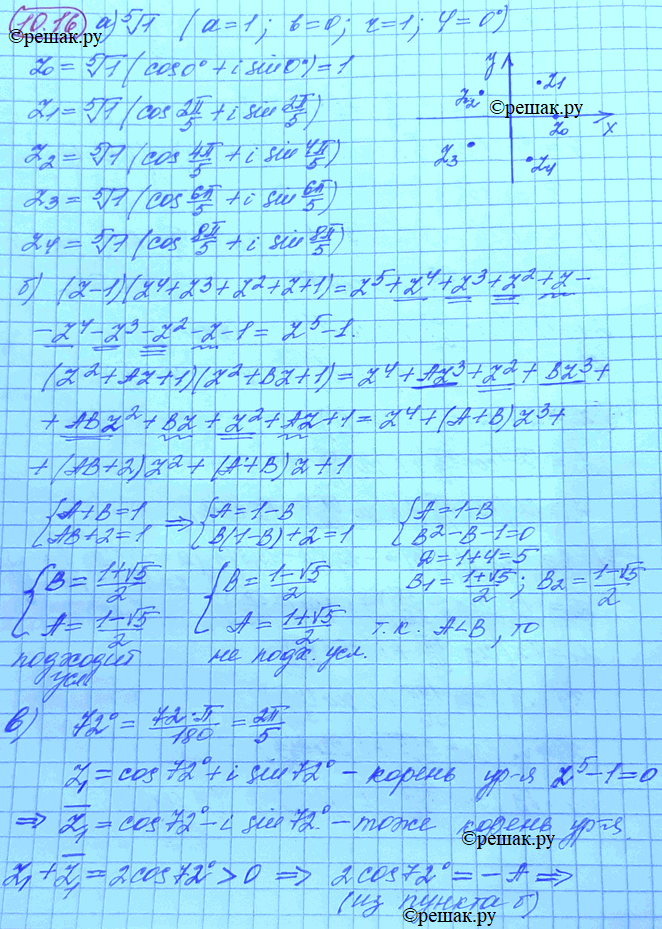 10.16 а) ⁵√1 (a=1; b=0; r=1; φ=0°)
©решак.ру
z₀ = ⁵√1 (cos0° + i sin0°) = 1
z₁ = ⁵√1 (cos 2π/5 + i sin 2π/5)
z₂ = ⁵√1 (cos 4π/5 + i sin 4π/5)
z₃ = ⁵√1 (cos 6π/5 + i sin 6π/5)
z₄ = ⁵√1 (cos 8π/5 + i sin 8π/5)
y
z₁
z₂
©решак.ру
z₀
x
z₃
z₄
б) (z-1)(z⁴+z³+z²+z+1) = z⁵+z⁴+z³+z²+z-
-z⁴-z³-z²-z-1 = z⁵-1.
(z²+Az+1)(z²+Bz+1) = z⁴+Az³+z²+Bz³+
+ABz²+Bz+z²+Az+1 = z⁴+(A+B)z³+
+(AB+2)z²+(A+B)z+1
{A+B=1 ⇒ {A=1-B {A=1-B
{AB+2=1 {B(1-B)+2=1 {B²-B-1=0
D=1+4=5
B₁= (1+√5)/2; B₂= (1-√5)/2
{B= (1+√5)/2 {B= (1-√5)/2
{A= (1-√5)/2 {A= (1+√5)/2 т.к. A<B, то
подходит не подх. усл.
усл
в) 72° = 72·π/180 = 2π/5
z₁ = cos72° + i sin72° - корень ур-я z⁵-1=0
⇒ z̅₁ = cos72° - i sin72° - тоже корень ур-я
©решак.ру
z₁+z̅₁ = 2cos72° > 0 ⇒ 2cos72° = -A ⇒
(из пункта б)
©решак.ру